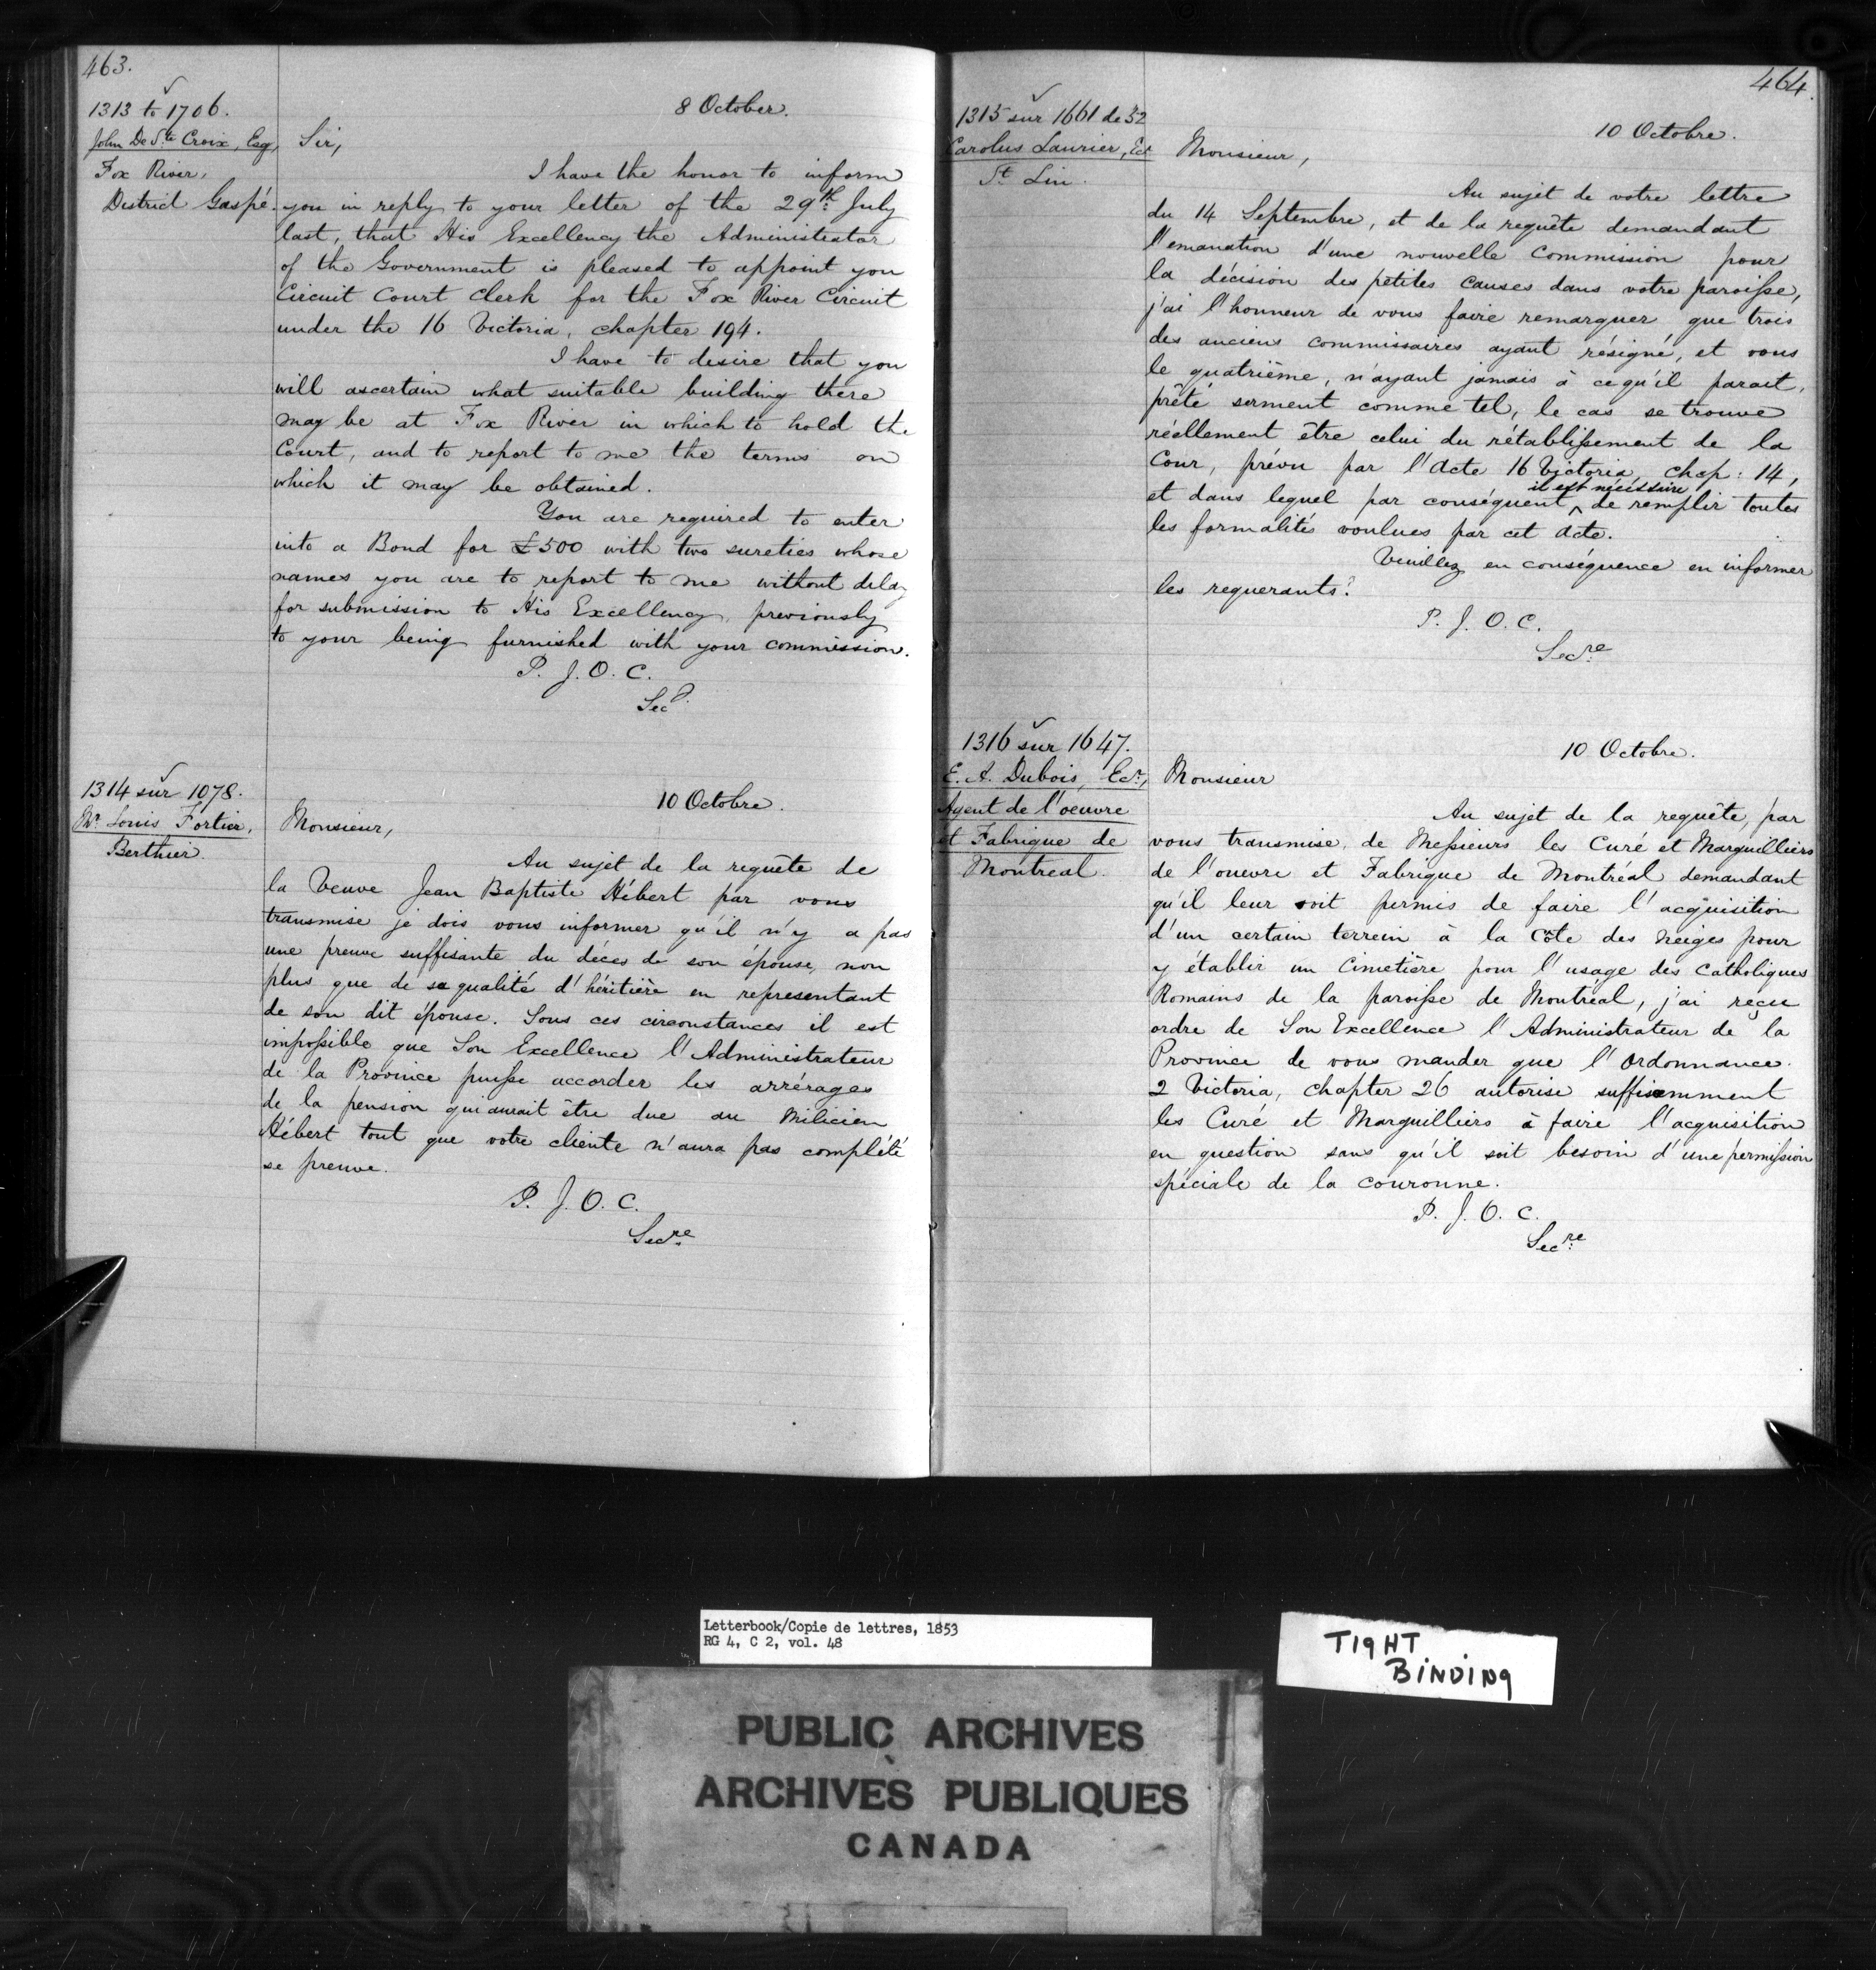 463.
1313 to 1706.
8 October.
John De Ste Croix, Esq,
Fox River,
District Gaspé.
Sir,
I have the honor to inform
you in reply to your letter of the 29th July
last, that His Excellency the Administrator
of the Government is pleased to appoint you
Circuit Court Clerk for the Fox River Circuit
under the 16 Victoria, chapter 194.
I have to desire that you
will ascertain what suitable building there
may be at Fox River in which to hold the
Court, and to report to me the terms on
which it may be obtained.
You are required to enter
into a Bond for £500 with two sureties whose
names you are to report to me without delay
for submission to His Excellency, previously
to your being furnished with your commission.
P. J. O. C.
Secy.
1314 sur 1078.
10 Octobre.
Mr. Louis Fortier,
Berthier.
Monsieur,
Au sujet de la requête de
la Veuve Jean Baptiste Hébert par vous
transmise je dois vous informer qu'il n'y a pas
une preuve suffisante du décès de son épouse, non
plus que de sa qualité d'héritière en representant
de son dit épouse. Sous ces circonstances il est
impossible que Son Excellence l'Administrateur
de la Province puisse accorder les arrérages
de la pension qui aurait être due au Milicien
Hébert tout que votre cliente n'aura pas complété
se preuve.
P. J. O. C.
Secre
464.
1315 sur 1661 de 52
10 Octobre.
Carolus Laurier, Ecr
St. Lin.
Monsieur,
Au sujet de votre lettre
du 14 Septembre, et de la requête demandant
l'emanation d'une nouvelle Commission pour
la décision des petites causes dans votre paroisse,
j'ai l'honneur de vous faire remarquer, que trois
des anciens commissaires ayant résigné, et vous
le quatrième, n'ayant jamais à ce qu'il parait,
prêté serment comme tel, le cas se trouve
réellement être celui du rétablissement de la
Cour, prévu par l'Acte 16 Victoria, chap: 14,
et dans lequel par conséquent ^ il est nécéssaire de remplir toutes
les formalités voulues par cet Acte.
Veuillez en conséquence en informer
les requerants.
P. J. O. C.
Secre
1316 sur 1647.
10 Octobre.
E. A. Dubois, Ecr,
Agent de l'oeuvre
et Fabrique de
Montreal.
Monsieur
Au sujet de la requête, par
vous transmise, de Messieurs les Curé et Marguilliers
de l'ouevre et Fabrique de Montréal demandant
qu'il leur soit permis de faire l'acquisition
d'un certain terrein à la Côte des Neiges pour
y établir un Cimetière pour l'usage des Catholiques
Romains de la paroisse de Montréal, j'ai reçu
ordre de Son Excellence l'Administrateur de la
Province de vous mander que l'Ordonnance
2 Victoria, Chapter 26 autorise suffisemment
les Curé et Marguilliers à faire l'acquisition
en question sans qu'il soit besoin d'une permission
spéciale de la couronne.
P. J. O. C.
Secre
Letterbook/Copie de lettres, 1853
RG 4, C 2, vol. 48
TIGHT
BINDING
PUBLIC ARCHIVES
ARCHIVES PUBLIQUES
CANADA